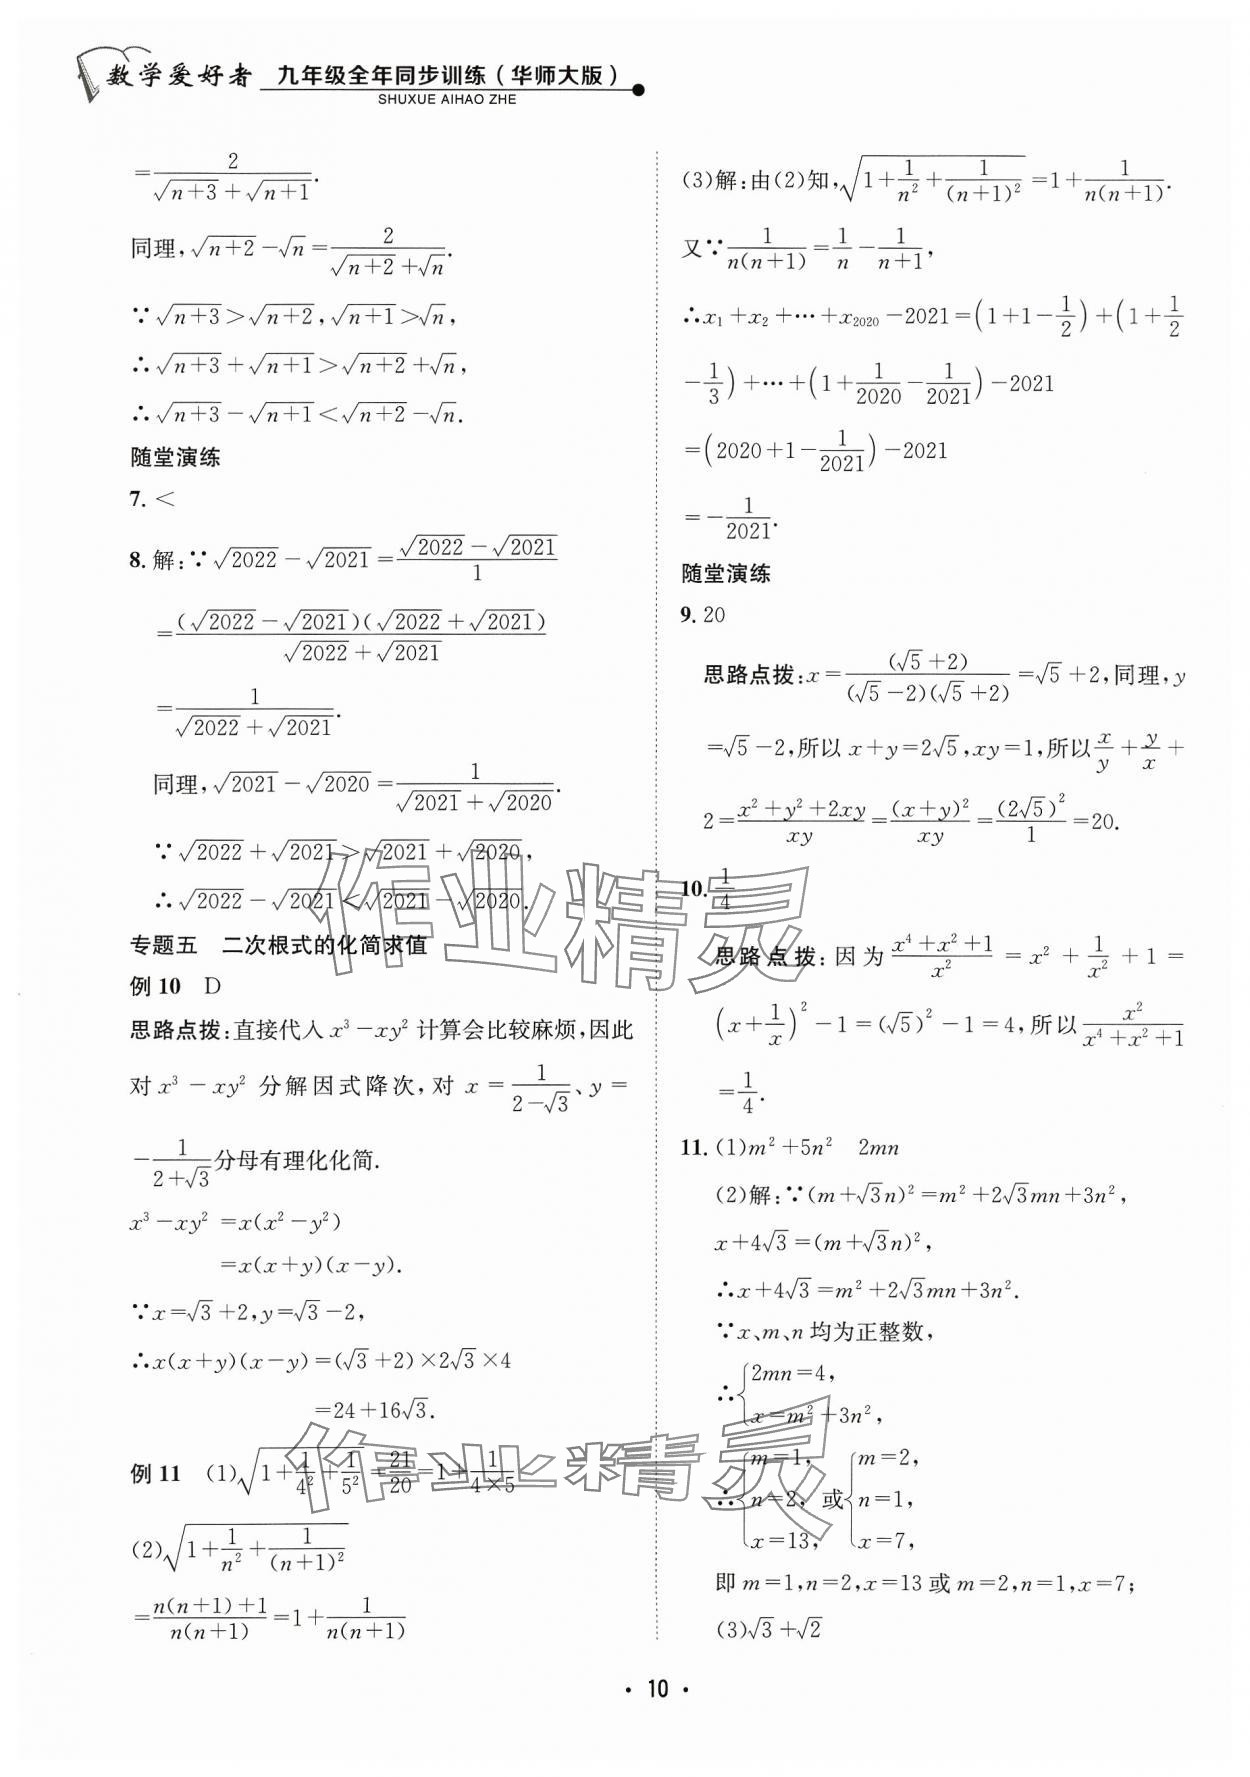 数学爱好者 九年级全年同步训练(华师大版)
SHUXUE AIHAO ZHE
=2/(√(n+3)+√(n+1)).
同理,√(n+2)-√n=2/(√(n+2)+√n).
∵√(n+3)>√(n+2),√(n+1)>√n,
∴√(n+3)+√(n+1)>√(n+2)+√n,
∴√(n+3)-√(n+1)<√(n+2)-√n.
随堂演练
7. <
8. 解:∵√2022-√2021=(√2022-√2021)/1
=(√2022-√2021)(√2022+√2021)/(√2022+√2021)
=1/(√2022+√2021).
同理,√2021-√2020=1/(√2021+√2020).
∵√2022+√2021>√2021+√2020,
∴√2022-√2021<√2021-√2020.
专题五 二次根式的化简求值
例10 D
思路点拨:直接代入 x³-xy² 计算会比较麻烦,因此
对 x³-xy² 分解因式降次,对 x=1/(2-√3)、y=
-1/(2+√3)分母有理化化简.
x³-xy² =x(x²-y²)
=x(x+y)(x-y).
∵x=√3+2,y=√3-2,
∴x(x+y)(x-y)=(√3+2)×2√3×4
=24+16√3.
例11 (1)√(1+1/4²+1/5²)=21/20=1+1/(4×5)
(2)√(1+1/n²+1/(n+1)²)
=(n(n+1)+1)/(n(n+1))=1+1/(n(n+1))
(3)解:由(2)知,√(1+1/n²+1/(n+1)²)=1+1/(n(n+1)).
又∵1/(n(n+1))=1/n-1/(n+1),
∴x₁+x₂+…+x₂₀₂₀-2021=(1+1-1/2)+(1+1/2
-1/3)+…+(1+1/2020-1/2021)-2021
=(2020+1-1/2021)-2021
=-1/2021.
随堂演练
9. 20
思路点拨:x=(√5+2)/((√5-2)(√5+2))=√5+2,同理,y
=√5-2,所以 x+y=2√5,xy=1,所以x/y+y/x+
2=(x²+y²+2xy)/xy=(x+y)²/xy=(2√5)²/1=20.
10. 1/4
思路点拨:因为(x⁴+x²+1)/x²=x²+1/x²+1=
(x+1/x)²-1=(√5)²-1=4,所以x²/(x⁴+x²+1)
=1/4.
11. (1)m²+5n² 2mn
(2)解:∵(m+√3n)²=m²+2√3mn+3n²,
x+4√3=(m+√3n)²,
∴x+4√3=m²+2√3mn+3n².
∵x、m、n 均为正整数,
∴{2mn=4,
x=m²+3n²,
∴{m=1, n=2, x=13, 或{m=2, n=1, x=7,
即 m=1,n=2,x=13 或 m=2,n=1,x=7;
(3)√3+√2
· 10 ·
作业精灵
作业精灵